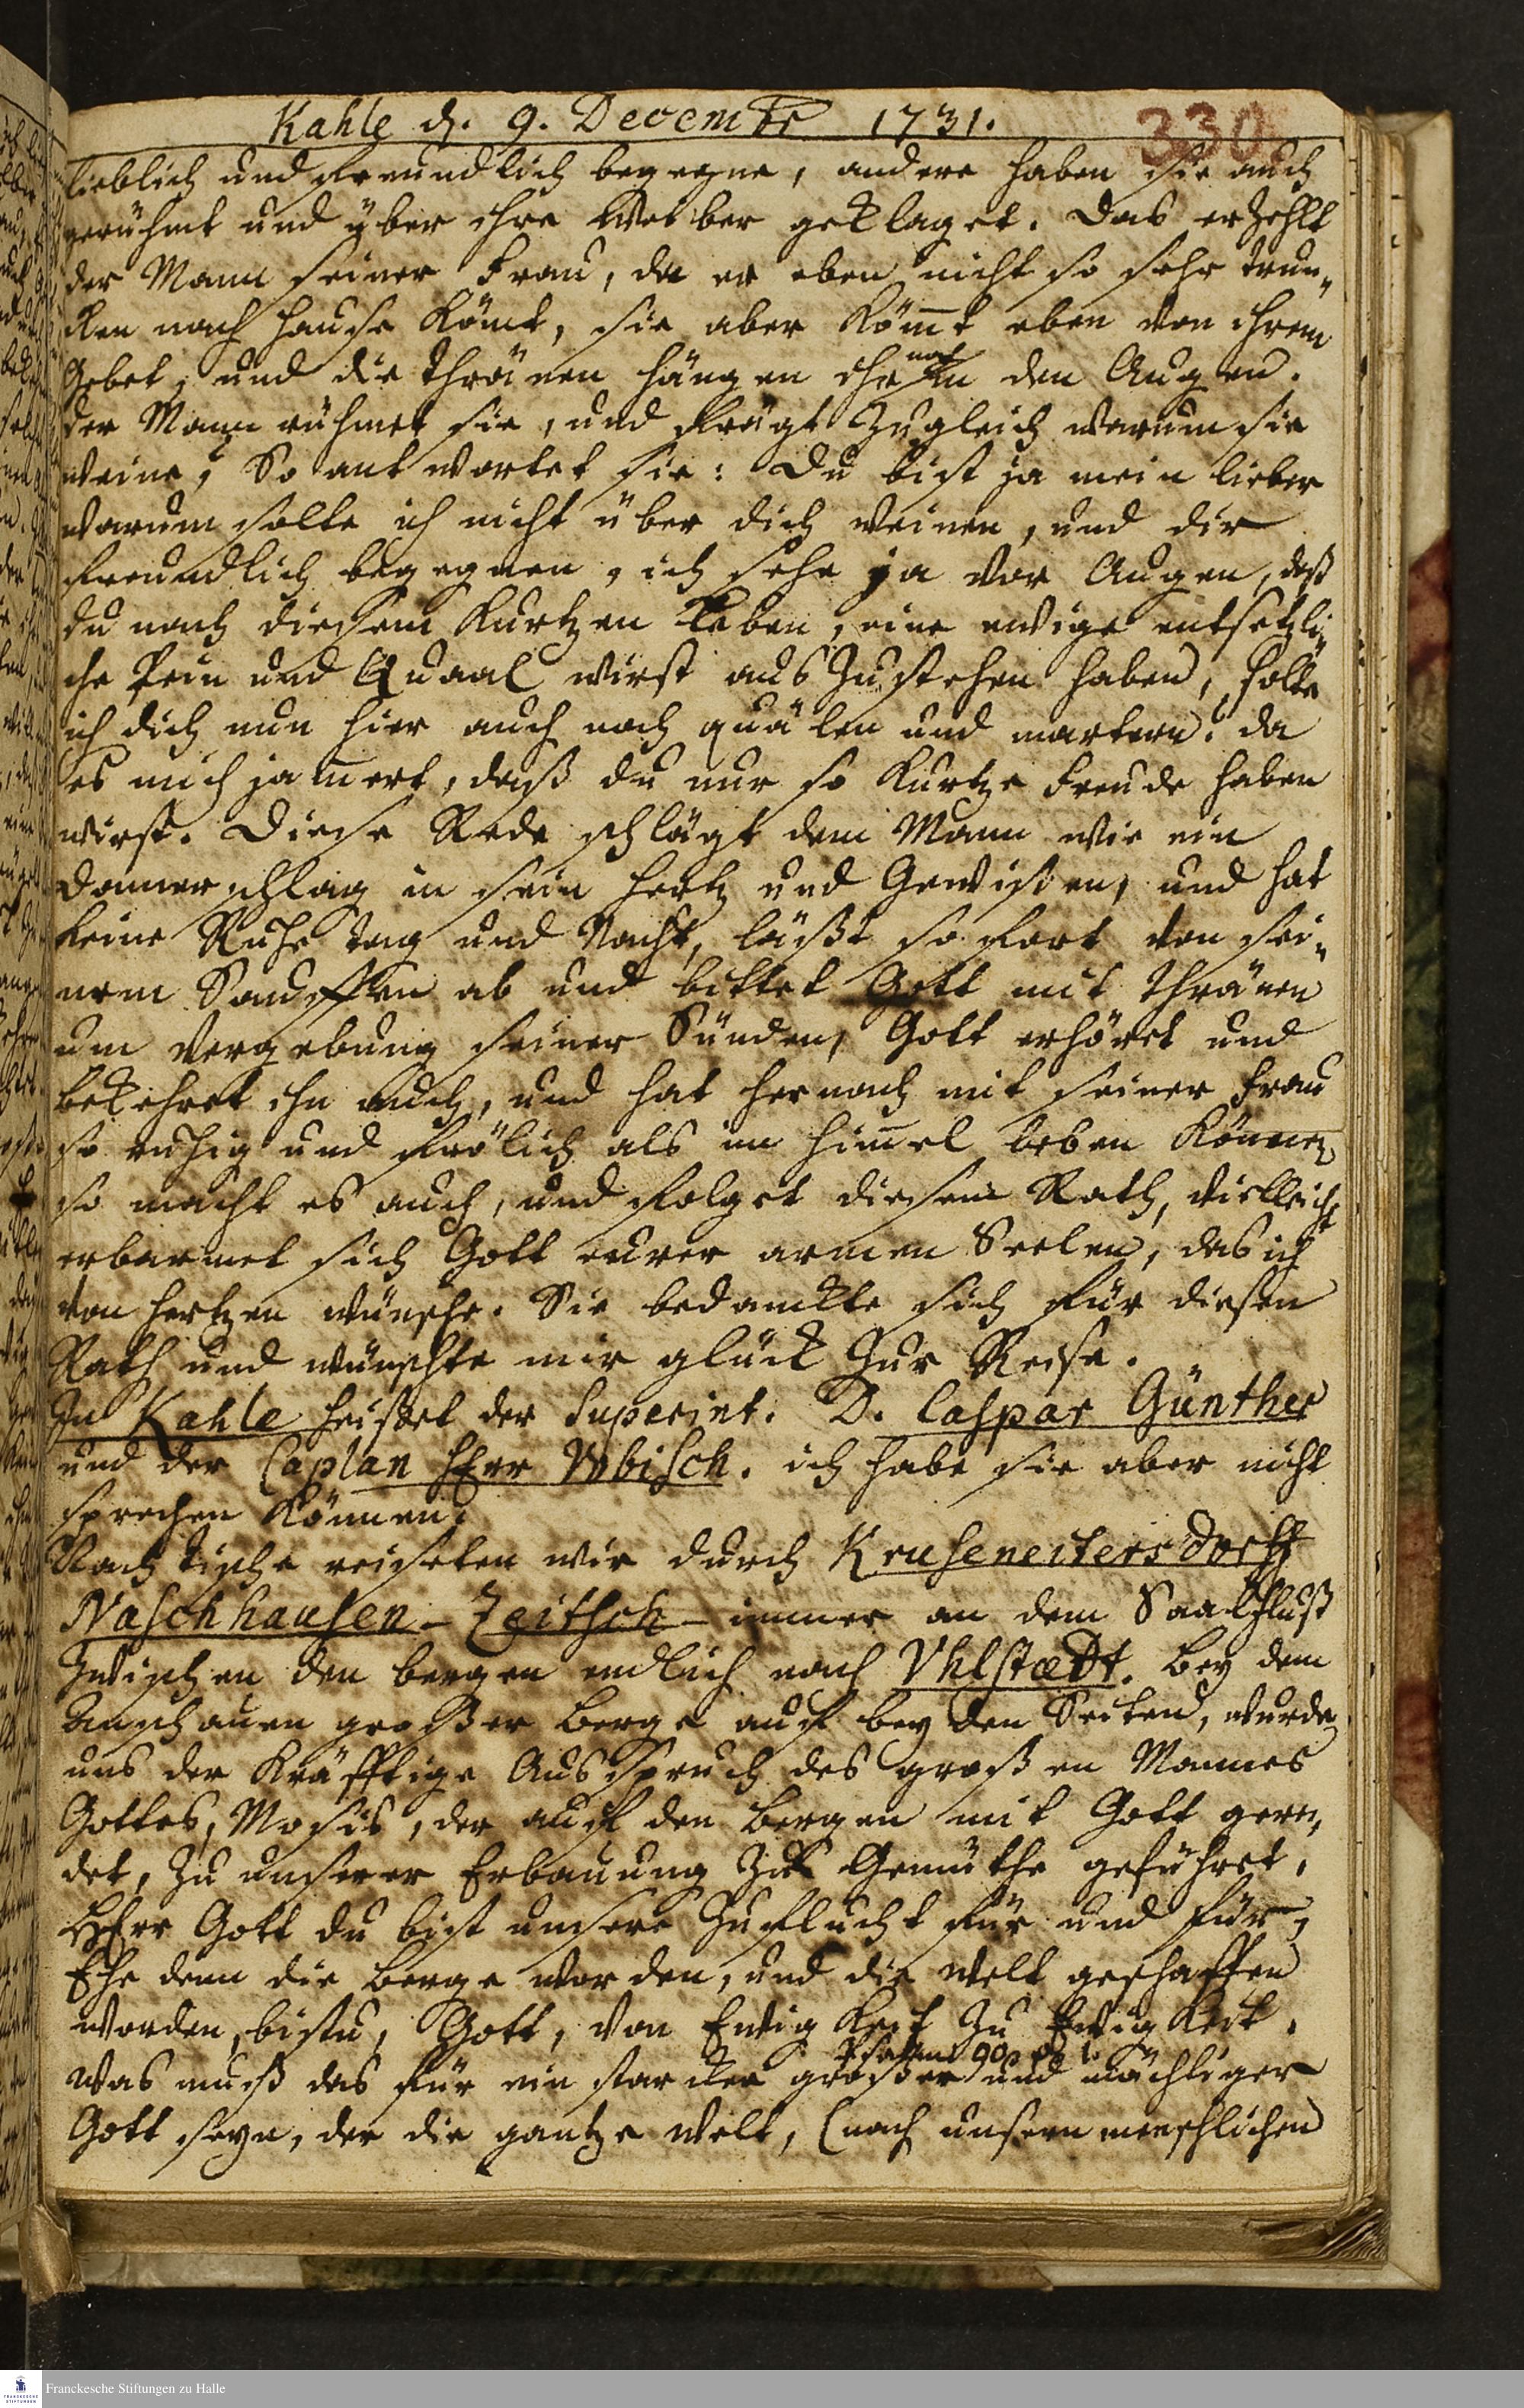 Kahle d. 9. Decembr 1731.
330
lieblich und freundlich begegne, andere haben sie auch
gerühmt und über ihre Weiber geklaget. Das erzehlt
der Mann seiner Frau, da er eben nicht so sehr trun„
cken nach Hause kömt, sie aber kömt eben von ihrem
Gebet, und die Thränen hängen ihr noch in den Augen.
der Mann rühmet sie, und fragt zugleich warum sie
weine, So antwortet sie: Du bist ja mein lieber
warum solte ich nicht über dich weinen, und dir
freundlich begegnen, ich sehe ja vor Augen, daß
du nach diesem kurtzen Leben, eine ewige entsetzli„
che Pein und Quaal wirst auszustehen haben, solte
ich dich nun hier auch noch quälen und martern? da
es mich jamert, daß du nur so kurtze Freude haben
wirst. Diese Rede schlägt dem Mann wie ein
Donnerschlag in sein Hertz und Gewißen, und hat
keine Ruhe Tag und Nacht, läßt sofort von sei„
nem Sauffen ab und bittet Gott mit Thränen
um Vergebung seiner Sünden, Gott erhöret und
bekehret ihn auch, und hat hernach mit seiner Frau
so ruhig und frölich als im Himel leben können,
so macht es auch, und folget diesem Rath, vielleicht
erbarmet sich Gott eurer armen Seelen, das ich
von Hertzen wünsche. Sie bedanckte sich für diesen
Rath und wünschte mir glück zur Reise.
In Kahle heisset der Superint. D. Caspar Günther
und der Caplan HErr Wbisch. ich habe sie aber nicht
sprechen können.
Nach Tische reiseten wir durch Kruseneitersdorff
Naschhausen - Zeitsch - immer an dem Saalfluß
zwischen den bergen endlich nach Vhlstædt. Bey dem
Anschauen großer Berge auf beyden Seiten, wurde
uns der kräfftige Ausspruch des großen Mannes
Gottes, Mosis, der auf den Bergen mit Gott gere„
det, zu unserer Erbauung zu Gemüthe geführet,
HErr Gott du bist unsere Zuflucht für und für,
Ehe denn die Berge worden, und die Welt geschaffen
worden, bistu, Gott, von Ewigkeit zu Ewigkeit.
Psalm 90 v 1.
Was muß das für ein starcker großer und mächtiger
Gott seyn, der die gantze Welt, (nach unsern menschlichen
Franckesche Stiftungen zu Halle